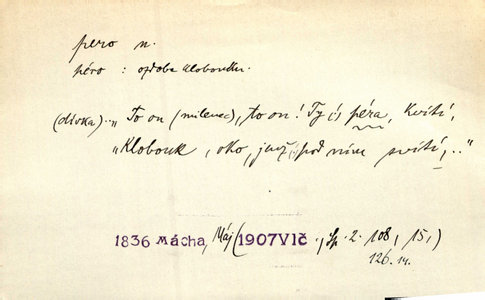 pero n.
péro : ozdoba klobouku.
(dívka).. „To on (milenec), to on! Ty péra, kvítí,
„Klobouk, oko, jenž pod ním svítí,.."
1836 Mácha, Máj (1907Vlč., Sp. 2. 108, 15,)
126. 14.